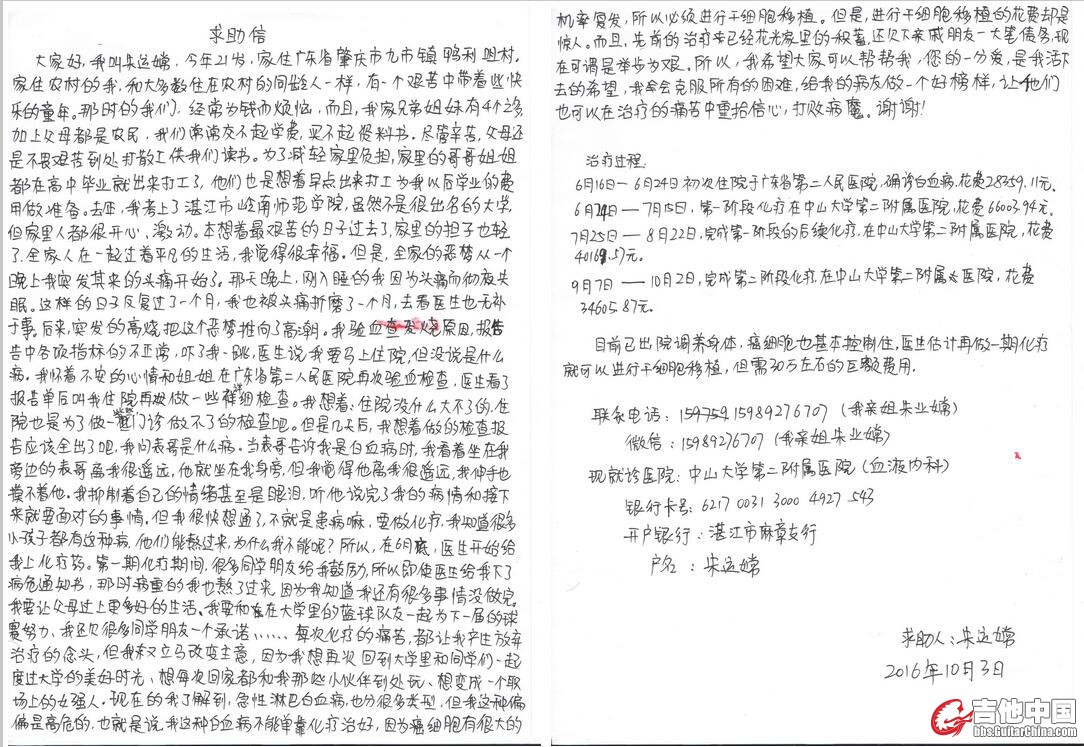 求助信
大家好,我叫朱运嫦,今年21岁,家住广东省肇庆市九市镇 鸭利咀村。
家住农村的我,和大多数住在农村的同龄人一样,有一个艰苦中带着些快
乐的童年。那时的我们,经常为钱而烦恼,而且,我家兄弟姐妹有4个之多,
加上父母都是农民,我们常常交不起学费,买不起资料书。尽管辛苦,父母还
是不畏艰苦到处打散工供我们读书。为了减轻家里负担,家里的哥哥姐姐
都在高中毕业就出来打工了,他们也是想着早点出来打工为我以后学业的费
用做准备。去年,我考上了湛江市岭南师范学院,虽然不是很出名的大学,
但家里人都很开心、激动。本想着最艰苦的日子过去了,家里的担子也轻
了,全家人在一起过着平凡的生活,我觉得很幸福。但是,全家的恶梦从一个
晚上我突发其来的头痛开始了。那天晚上,刚入睡的我因为头痛而彻夜失
眠。这样的日子反复过了一个月,我也被头痛折磨了一个月,去看医生也无补
于事。后来,突发的高烧把这个恶梦推向了高潮。我验血查发烧原因,报告
告中各项指标的不正常,吓了我一跳,医生说我要马上住院,但没说是什么
病。我怀着不安的心情和姐姐在广东省第二人民医院再次验血检查,医生看了
报告单后叫我住院再次做一些详细检查。我想着,住院没什么大不了的,住
院也是为了做一些门诊做不了的检查吧。但是几天后,我想着做的检查报
告应该全出了吧,我问表哥是什么病。当表哥告诉我是白血病时,我看着坐在我
旁边的表哥离我很遥远,他就坐在我身旁,但我觉得他离我很遥远,我伸手也
摸不着他。我抑制着自己的情绪甚至是眼泪,听他说完了我的病情和接下
来就要面对的事情。但我很快想通了,不就是患病嘛,要做化疗,我知道很多
小孩子都有这种病,他们能熬过来,为什么我不能呢?所以,在6月底,医生开始给
我上化疗药。第一期化疗期间,很多同学朋友给我鼓励,所以即使医生给我下了
病危通知书,那时病重的我也熬了过来,因为我知道我还有很多事情没做完,
我要让父母过上更多好的生活、我要和在大学里的蓝球队友一起为下一届的球
赛努力、我还欠很多同学朋友一个承诺……每次化疗的痛苦,都让我产生放弃
治疗的念头,但我又立马改变主意,因为我想再次回到大学里和同学们一起
度过大学的美好时光、想每次回家都和我那些小伙伴到处玩、想变成一个职
场上的女强人。现在的我了解到,急性淋巴白血病,也分很多类型,但我这种偏
偏是高危的,也就是说,我这种白血病不能单靠化疗治好,因为癌细胞有很大的
机率复发,所以必须进行干细胞移植。但是,进行干细胞移植的花费却是
惊人。而且,先前的治疗来已经花光家里的积蓄,还欠下亲戚朋友一大笔债务,现
在可谓是举步为艰。所以,我希望大家可以帮帮我,您的一分爱,是我活下
去的希望,我会克服所有的困难,给我的病友做一个好榜样,让他们
也可以在治疗的痛苦中重拾信心,打败病魔。谢谢!
治疗过程:
6月16日—6月24日初次住院于广东省第二人民医院,确诊白血病,花费28359.11元。
6月24日——7月15日,第一阶段化疗在中山大学第二附属医院,花费66003.94元。
7月25日——8月22日,完成第一阶段的后续化疗,在中山大学第二附属医院,花费
40168.57元。
9月7日——10月2日,完成第二阶段化疗,在中山大学第二附属医院,花费
34605.87元。
目前已出院调养身体,癌细胞也基本控制住,医生估计再做一期化疗
就可以进行干细胞移植,但需30万左右的巨额费用.
联系电话:15989276707 (我亲姐朱业嫦)
微信:15989276707 (我亲姐朱业嫦)
现就诊医院:中山大学第二附属医院(血液内科)
银行卡号:6217 0031 3000 4927 543
开户银行:湛江市麻章支行
户名:朱运嫦
求助人:朱运嫦
2016年10月3日
吉他中国
bbs.GuitarChina.com